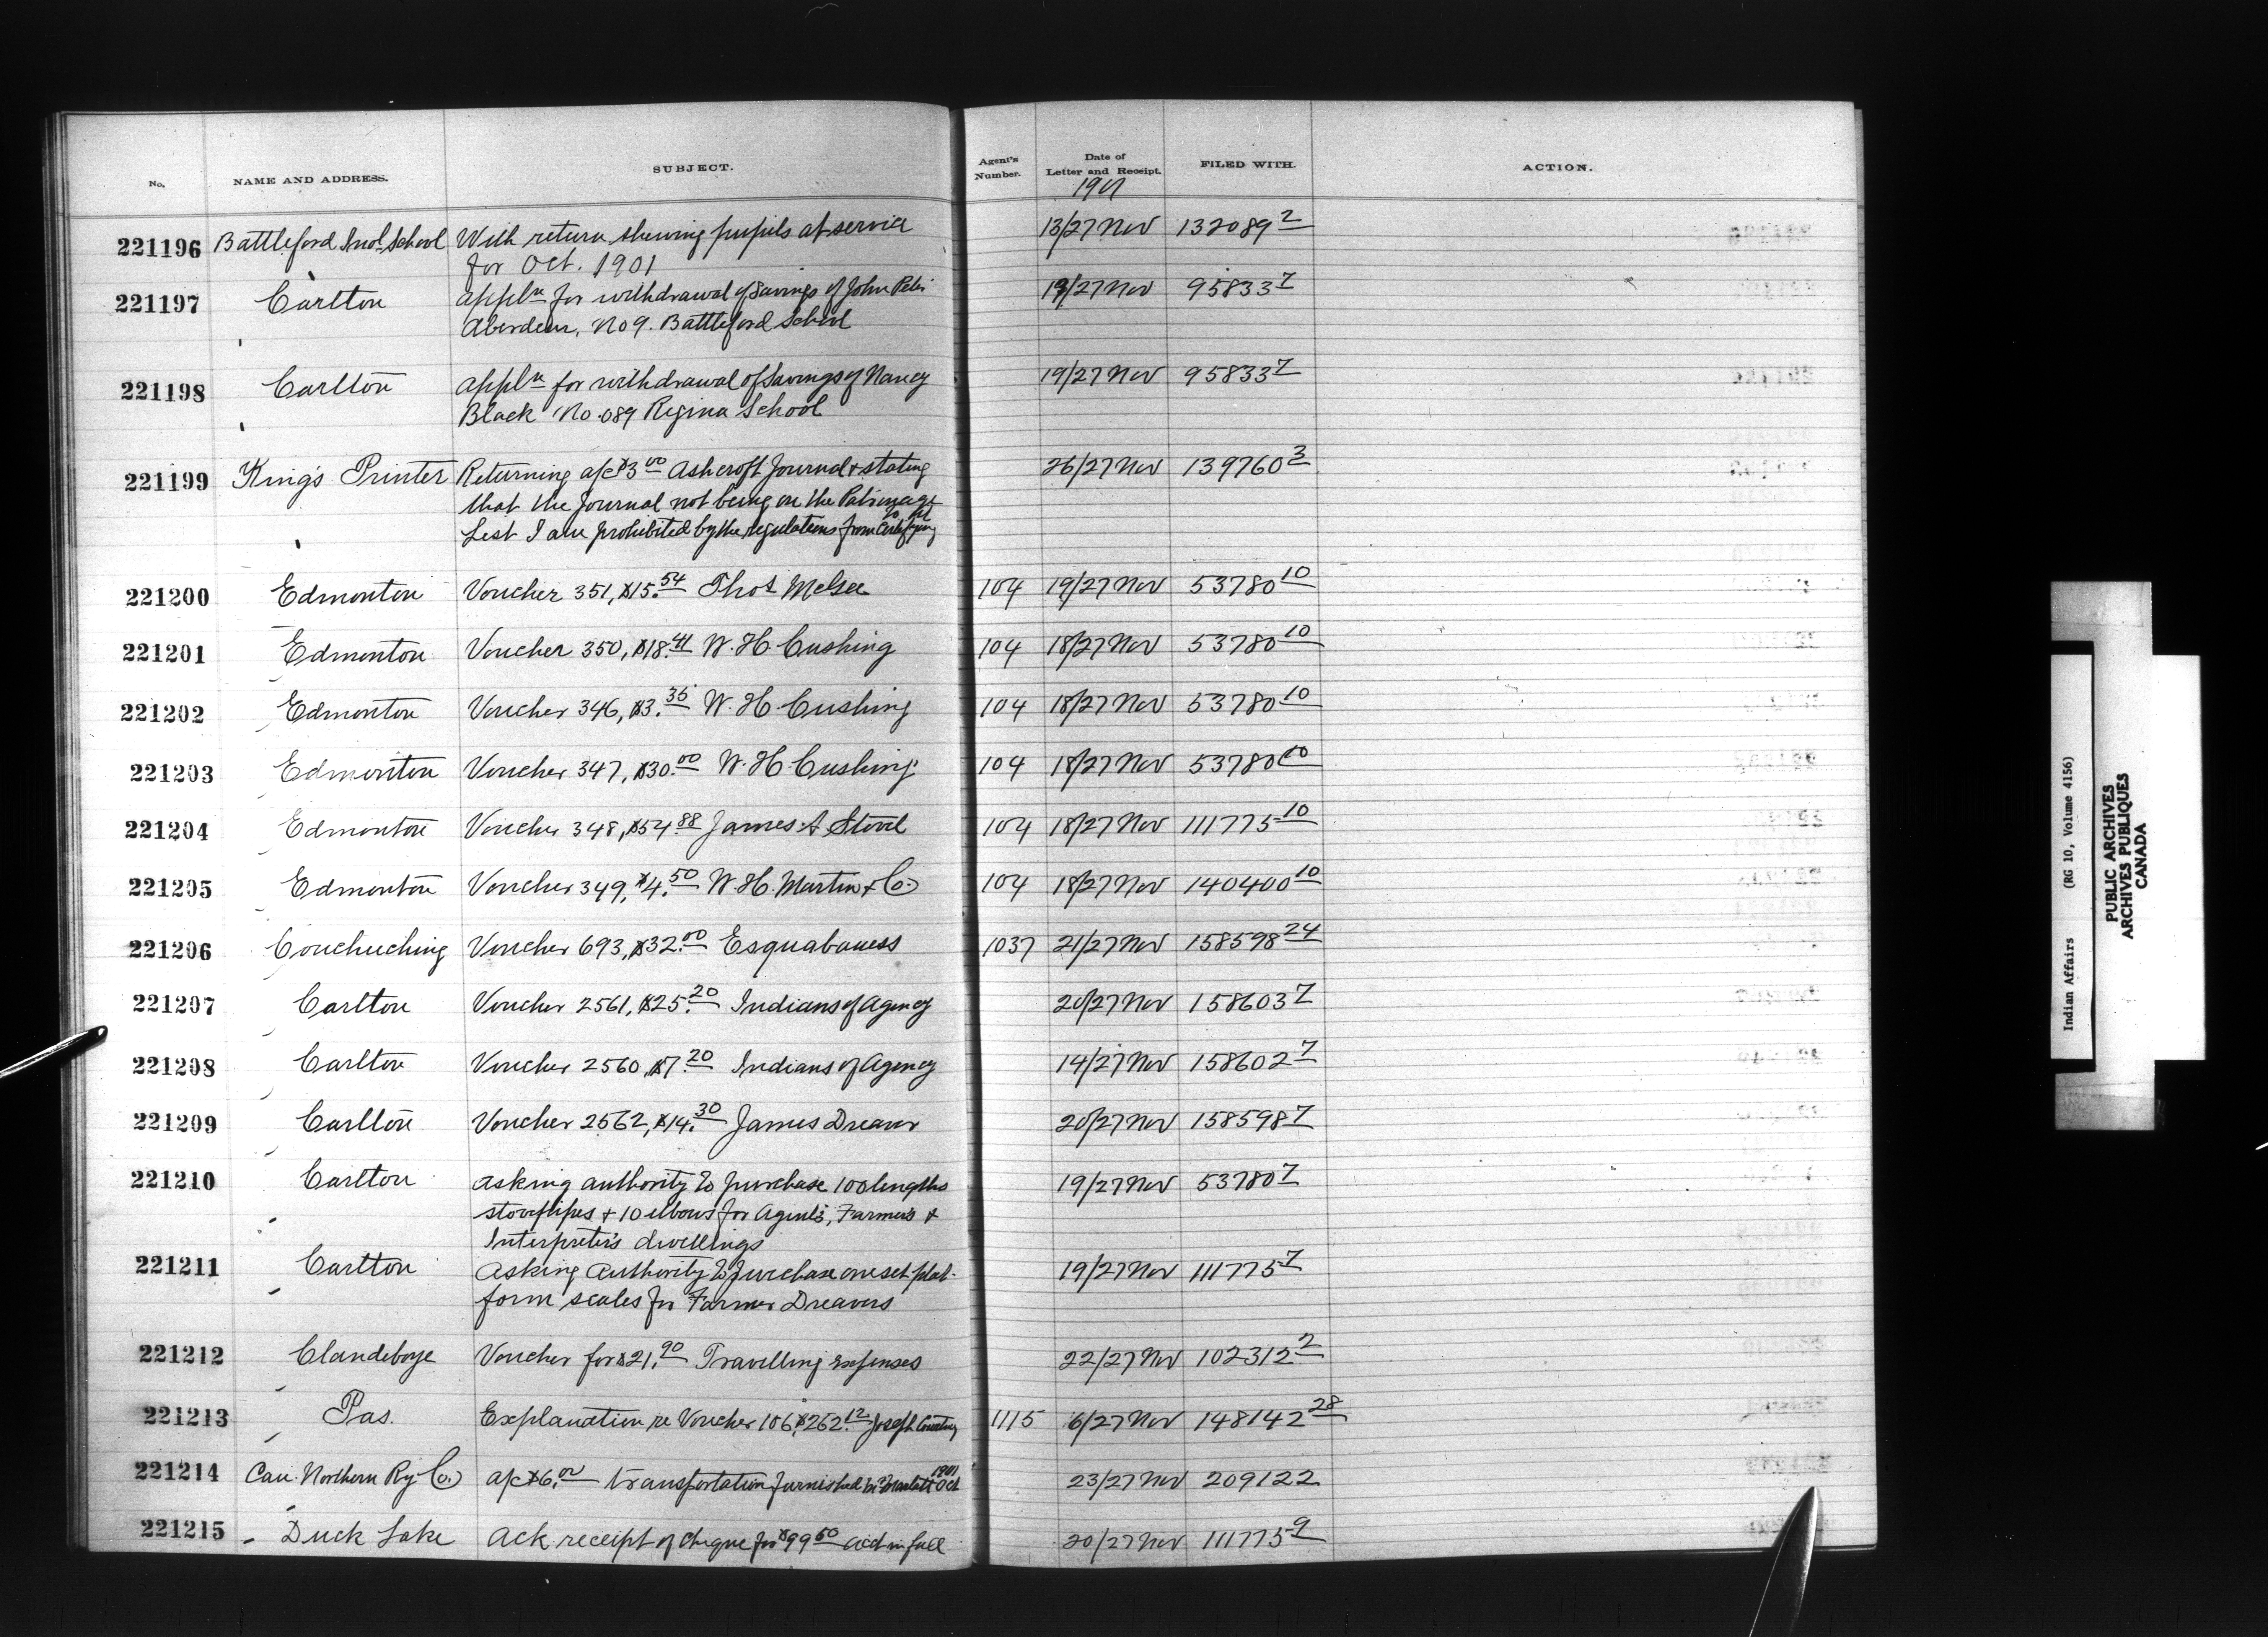 No. NAME AND ADDRESS. SUBJECT. Agent's Number. Date of Letter and Receipt. FILED WITH. ACTION.
1901
221196 Battleford Indl. School With return shewing pupils at service 13/27 Nov 132089 2
for Oct. 1901
221197 Carlton appln for withdrawal of Savings of John Peter 19/27 Nov 95833 7
Aberdeen, No 9. Battleford School
221198 Carlton appln for withdrawal of Savings of Nancy 19/27 Nov 95833 7
Black No. 089 Regina School
221199 King's Printer Returning a/c $3 00 Ashcroft Journal & stating 26/27 Nov 139760 3
that the Journal not being on the Patronage
List I am prohibited by the regulations from certifying to it
221200 Edmonton Voucher 351, $15.54 Thos McGee 104 19/27 Nov 53780 10
221201 Edmonton Voucher 350, $18.41 W. H. Cushing 104 18/27 Nov 53780 10
221202 Edmonton Voucher 346, $3.35 W. H. Cushing 104 18/27 Nov 53780 10
221203 Edmonton Voucher 347, $30.00 W. H. Cushing 104 18/27 Nov 53780 10
221204 Edmonton Voucher 348, $54.88 James A Stovel 104 18/27 Nov 111775 10
221205 Edmonton Voucher 349, $4.50 W. H. Martin & Co. 104 18/27 Nov 140400 10
221206 Couchuching Voucher 693, $32.00 Esquabaness 1037 21/27 Nov 158598 24
221207 Carlton Voucher 2561, $25.20 Indians of Agency 20/27 Nov 158603 7
221208 Carlton Voucher 2560, $7.20 Indians of Agency 14/27 Nov 158602 7
221209 Carlton Voucher 2562, $14.30 James Dreaver 20/27 Nov 158598 7
221210 Carlton asking authority to purchase 100 lengths 19/27 Nov 53780 7
stovepipes & 10 elbows for Agent's, Farmer's &
Interpreter's dwellings
221211 Carlton Asking Authority to purchase one set plat- 19/27 Nov 111775 7
form scales for Farmer Dreavers
221212 Clandeboye Voucher for $21.90 Travelling expenses 22/27 Nov 102312 2
221213 Pas. Explanation re Voucher 106, $262.12 Joseph Courtney 1115 6/27 Nov 148142 28
221214 Can. Northern Ry Co. a/c $6.00 transportation furnished Oct 1901 23/27 Nov 209122
221215 Duck Lake Ack receipt of cheque for $99 50 acct in full 20/27 Nov 111775 9
Indian Affairs (RG 10, Volume 4156)
PUBLIC ARCHIVES
ARCHIVES PUBLIQUES
CANADA